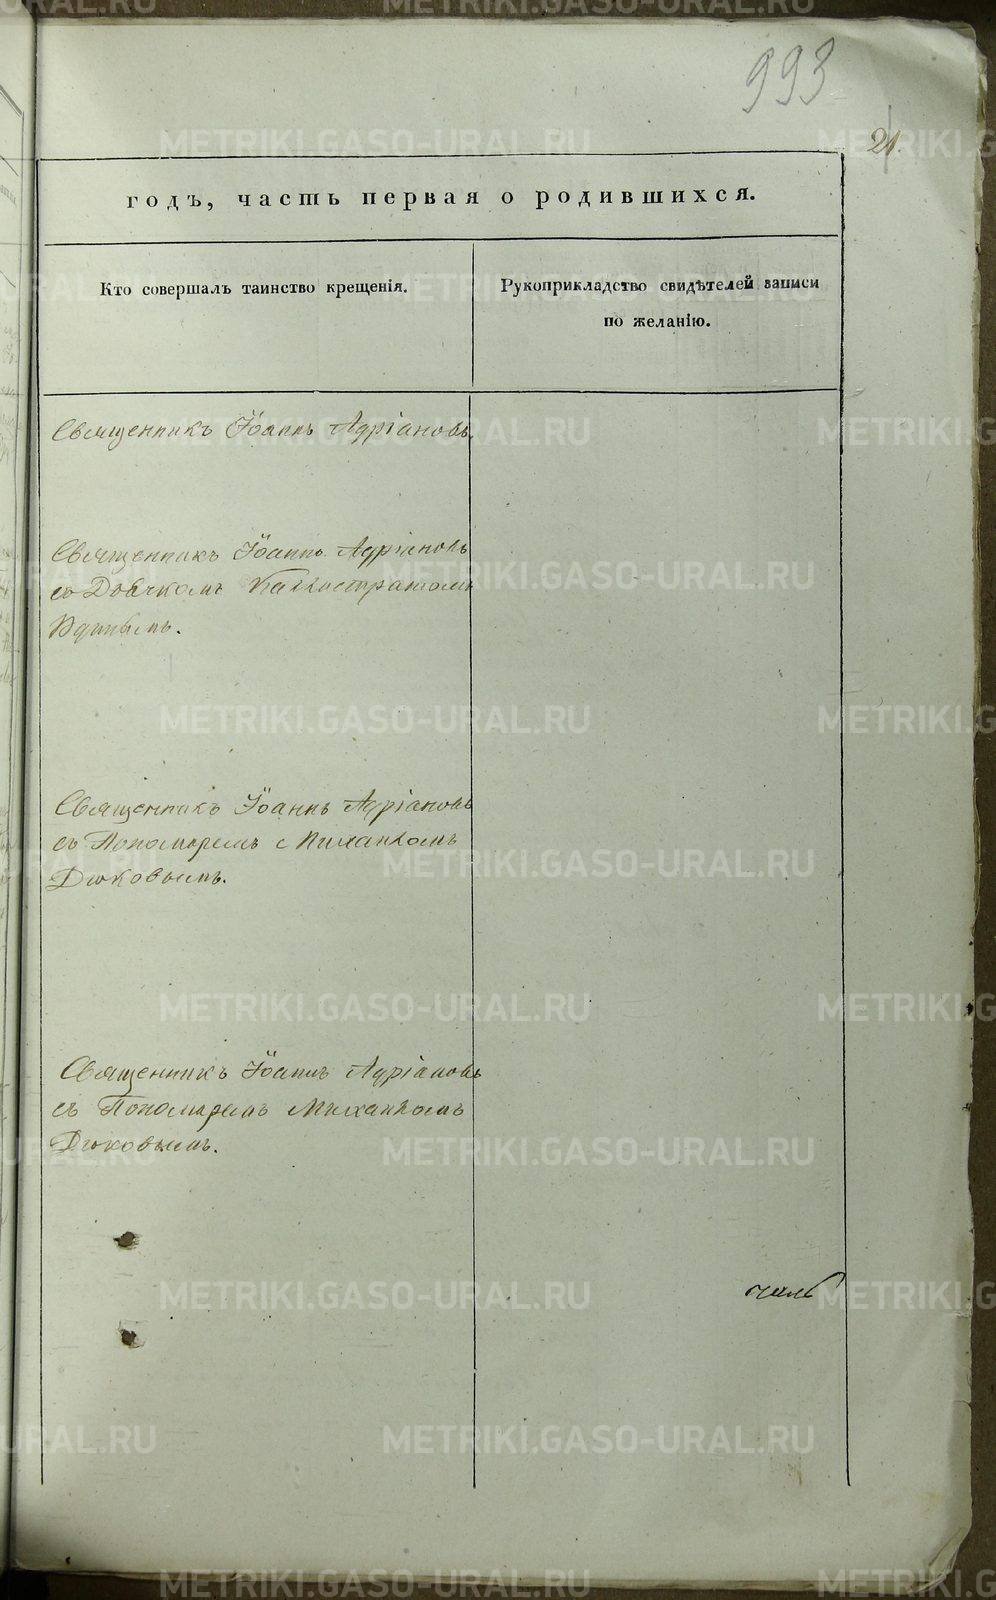 993
21.
годъ, часть первая о родившихся.
Кто совершалъ таинство крещенія.
Рукоприкладство свидѣтелей записи
по желанію.
Священникъ Іоаннъ Адріановъ.
Священникъ Іоаннъ Адріановъ
съ Дьячкомъ Каллистратомъ
Священникъ Іоаннъ Адріановъ
съ Пономаремъ Михаиломъ
Дюковымъ.
Священникъ Іоаннъ Адріановъ
съ Пономаремъ Михаиломъ
Дюковымъ.
METRIKI.GASO-URAL.RU